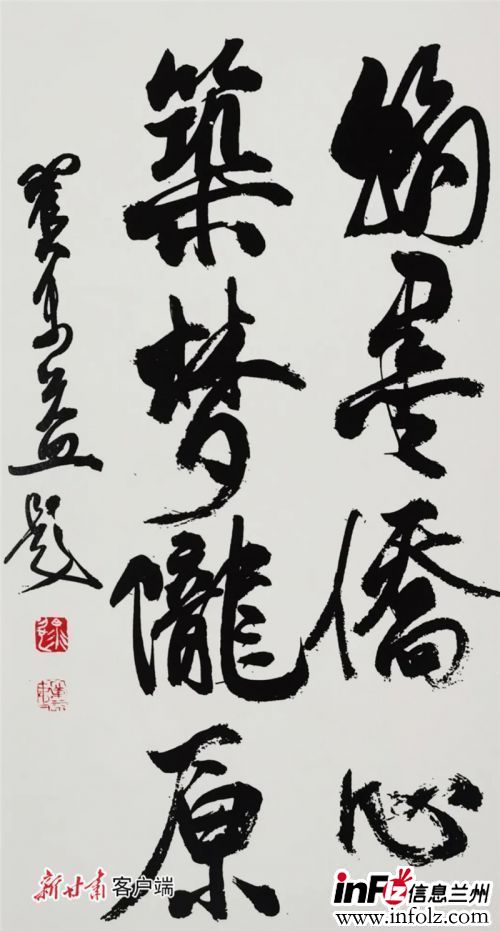 翰墨僑心
築梦隴原
翟万益题
新甘肃客户端
inFolz信息兰州
www.infolz.com